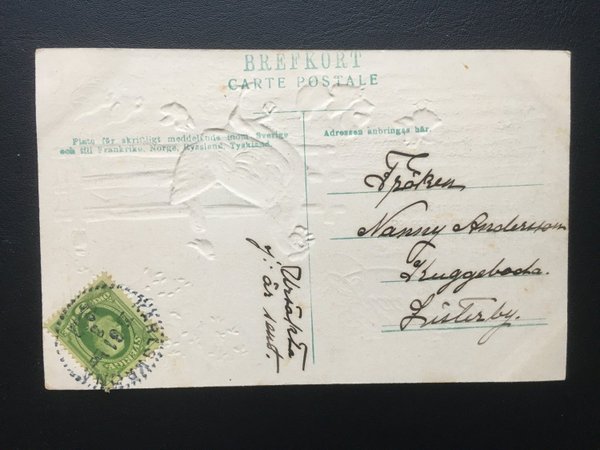 BREFKORT
CARTE POSTALE
Plats för skriftligt meddelande inom Sverige
och till Frankrike, Norge, Ryssland, Tyskland.
Adressen anbringas här.
Fröken
Nanny Andersson
Kuggeboda.
Listerby.
Ursäkta
j. är sent.